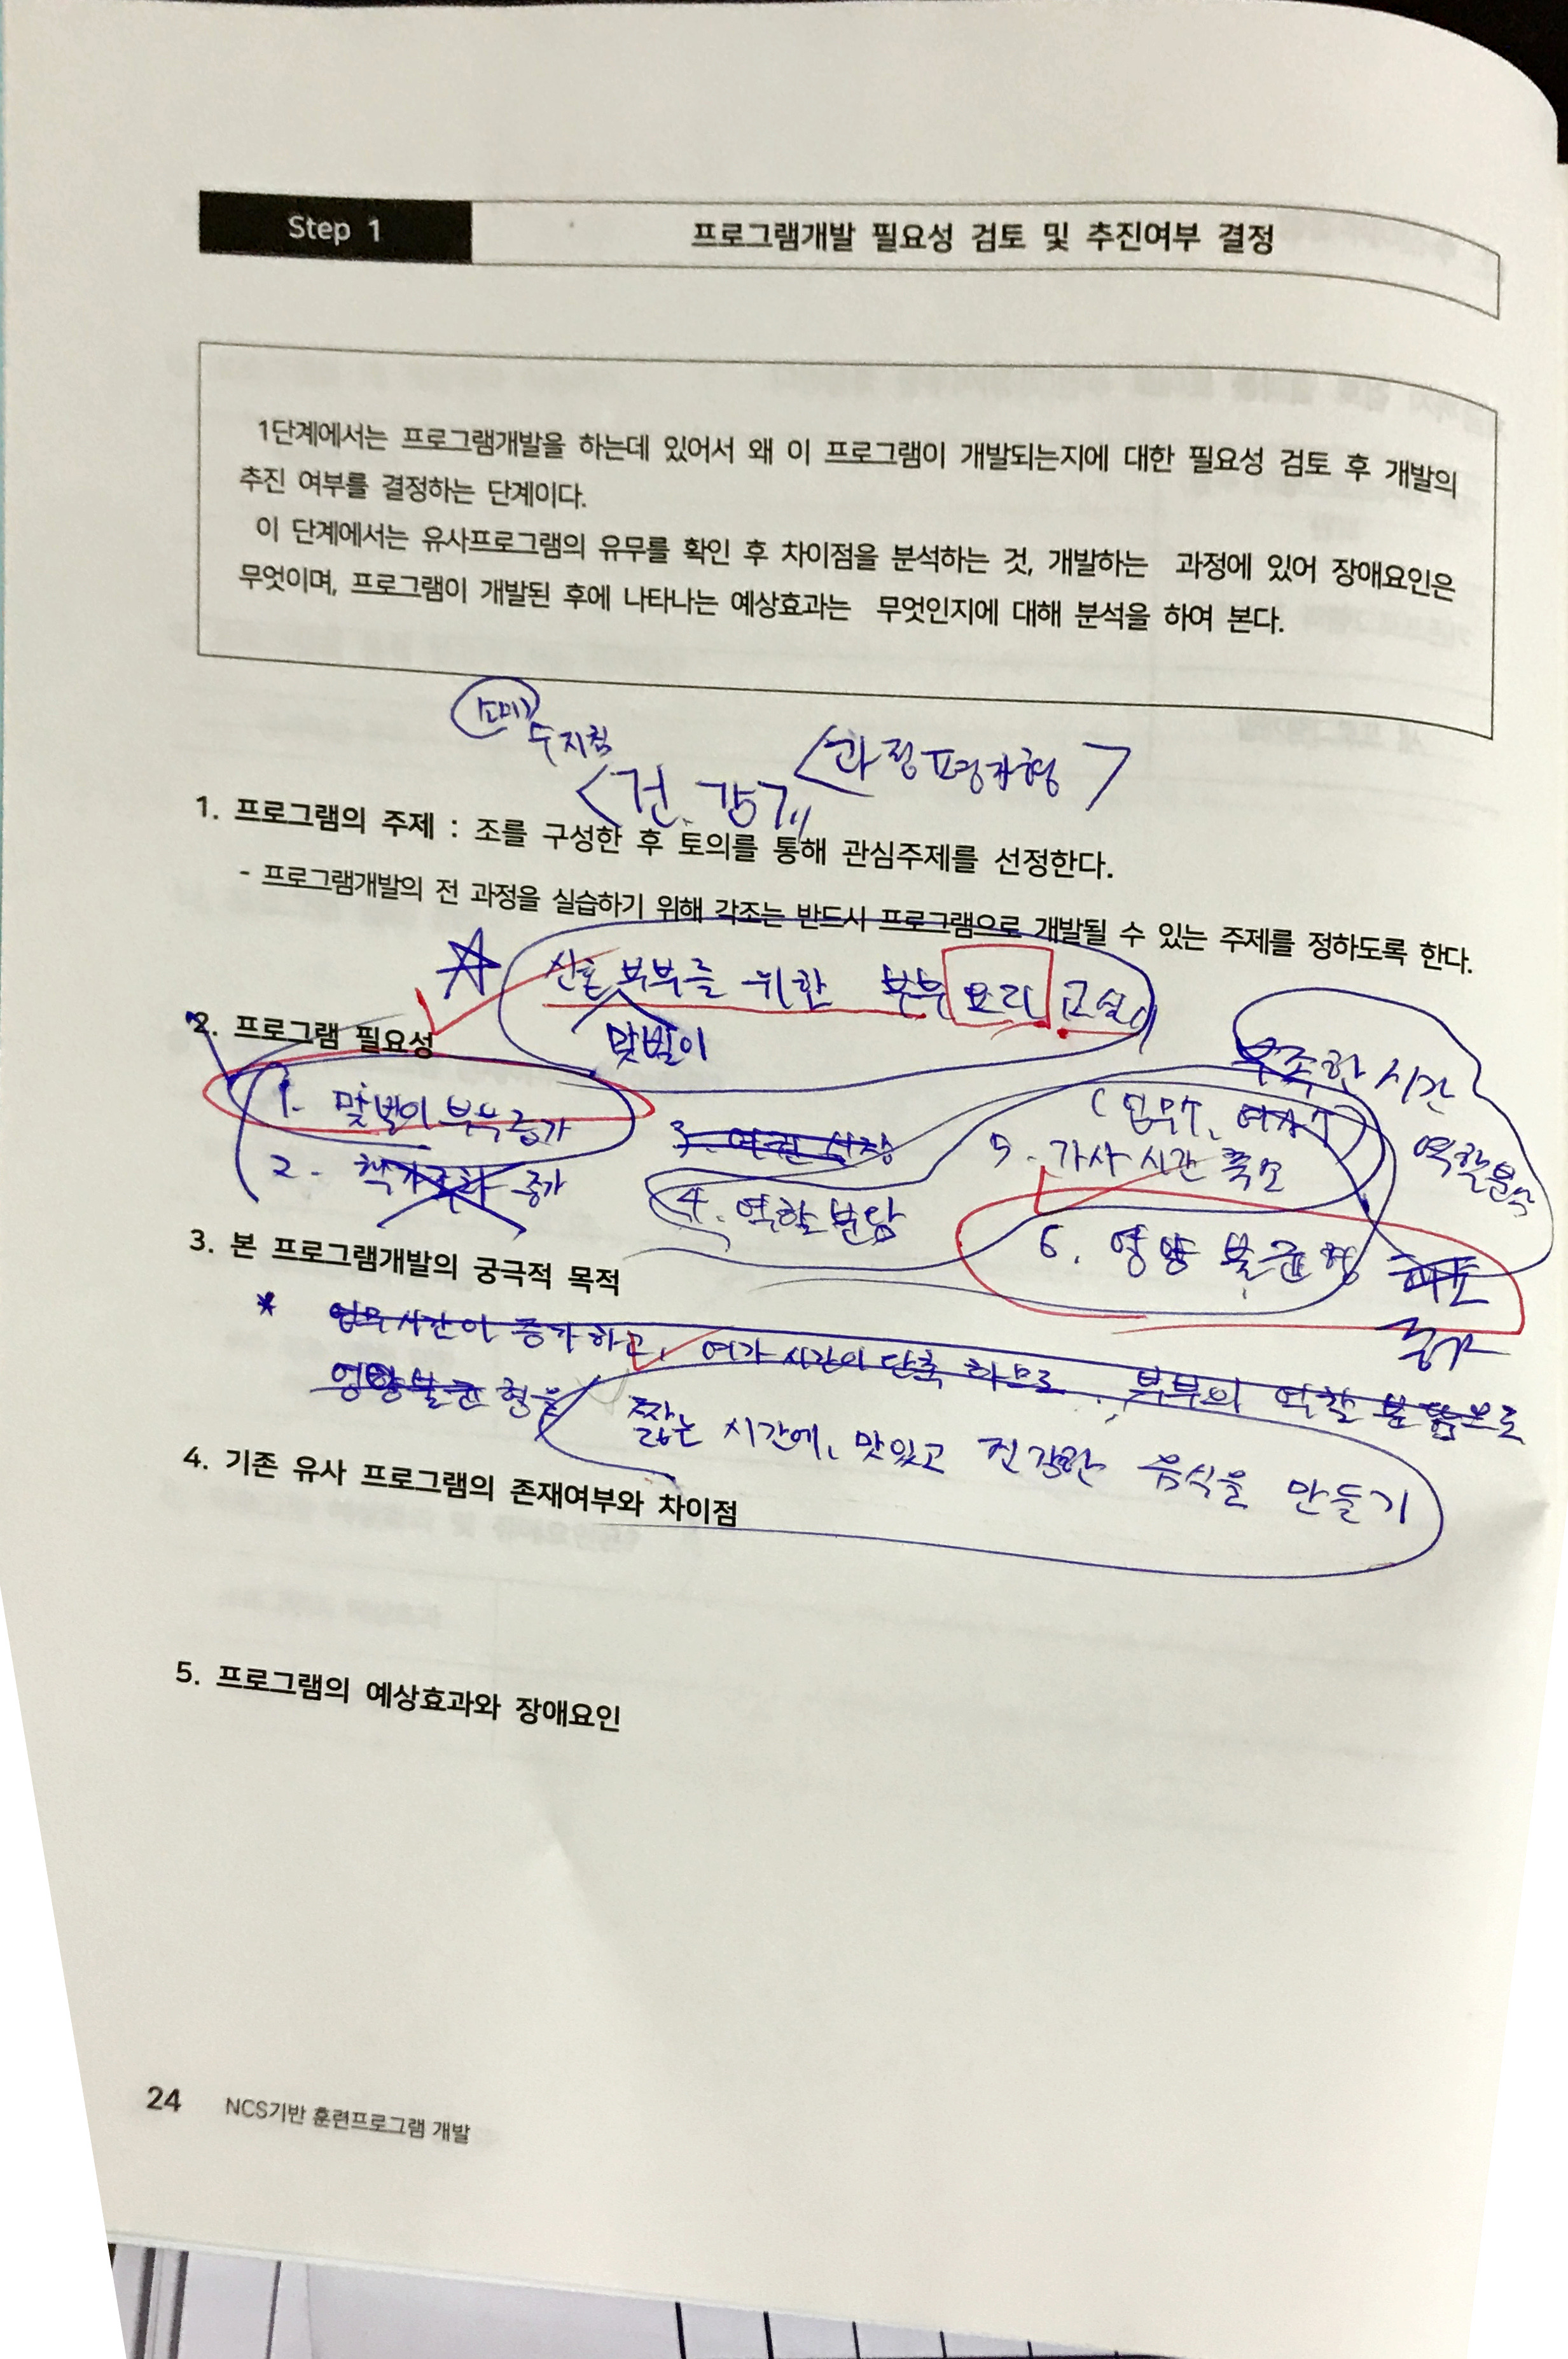 Step 1
프로그램개발 필요성 검토 및 추진여부 결정
1단계에서는 프로그램개발을 하는데 있어서 왜 이 프로그램이 개발되는지에 대한 필요성 검토 후 개발의
추진 여부를 결정하는 단계이다.
이 단계에서는 유사프로그램의 유무를 확인 후 차이점을 분석하는 것, 개발하는 과정에 있어 장애요인은
무엇이며, 프로그램이 개발된 후에 나타나는 예상효과는 무엇인지에 대해 분석을 하여 본다.
<과정평가형>
1. 프로그램의 주제 : 조를 구성한 후 토의를 통해 관심주제를 선정한다.
- 프로그램개발의 전 과정을 실습하기 위해 각조는 반드시 프로그램으로 개발될 수 있는 주제를 정하도록 한다.
신혼 부부를 위한 부부 요리 교실
맞벌이
2. 프로그램 필요성
부족한 시간
1. 맞벌이 부부 증가
2. 증가
4. 역할 분담
5. 가사 시간
역할분담
6. 영양 불균형
증가
3. 본 프로그램개발의 궁극적 목적
* 업무시간이 증가하고, 여가 시간이 단축 하므로, 부부의 역할 분담으로
영양불균형을
짧은 시간에, 맛있고 건강한 음식을 만들기
4. 기존 유사 프로그램의 존재여부와 차이점
5. 프로그램의 예상효과와 장애요인
24 NCS기반 훈련프로그램 개발